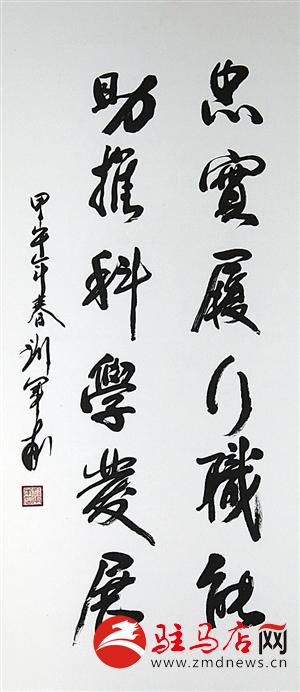 忠實履行職能
助推科學發展
甲午年春
驻马店网
www.zmdnews.cn